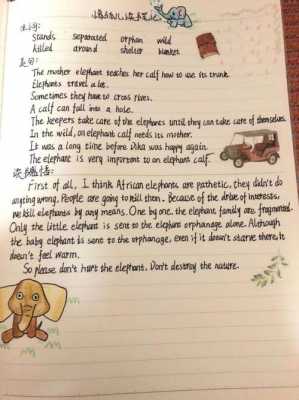 生词:
stands separated orphan wild
killed around shelter blanket
美句:
The mother elephant teaches her calf how to use its trunk.
Elephants travel a lot.
Sometimes they have to cross rives.
A calf can fall into a hole.
The keepers take care of the elephants until they can take care of themselves.
In the wild, an elephant calf needs its mother.
It was a long time before Dika was happy again.
The elephant is very important to an elephant calf.
读后感悟:
First of all, I think African elephants are pathetic, they didn't do
anything wrong. People are going to kill them. Because of the drive of interests,
we kill elephants by any means. One by one, the elephant family are fragmented.
Only the little elephant is sent to the elephant orphanage alone. Although
the baby elephant is sent to the orphanage, even if it doesn't starve there, it
doesn't feel warm.
So please don't hurt the elephant. Don't destroy the nature.